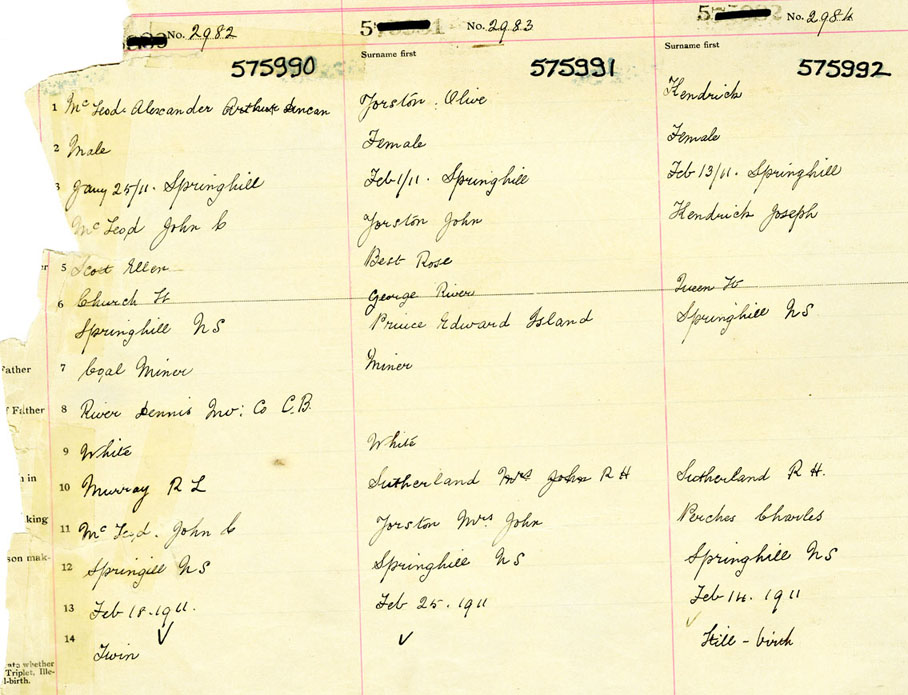 No. 2982
No. 2983
No. 2984
Surname first
Surname first
575990
575991
575992
1 McLeod Alexander Arthur Duncan
Yorston, Olive
Kendrick
2 Male
Female
Female
3 Jany 25/11. Springhill
Feb 1/11. Springhill
Feb 13/11. Springhill
McLeod John C
Yorston John
Kendrick Joseph
5 Scott Ellen
Best Rose
6 Church St
George River
Queen St
Springhill NS
Prince Edward Island
Springhill NS
Father
7 Coal Miner
Miner
f Father
8 River Dennis Inv: Co C.B.
9 White
White
in
10 Murray R L
Sutherland Mrs John R H
Sutherland R H.
king
11 McLeod. John C
Yorston Mrs John
Perches Charles
son mak-
12 Springill NS
Springhill NS
Springhill NS
13 Feb 18. 1911.
Feb 25. 1911
Feb 14. 1911
14 Twin
Still - birth
ate whether
Triplet, Ille-
l-birth.